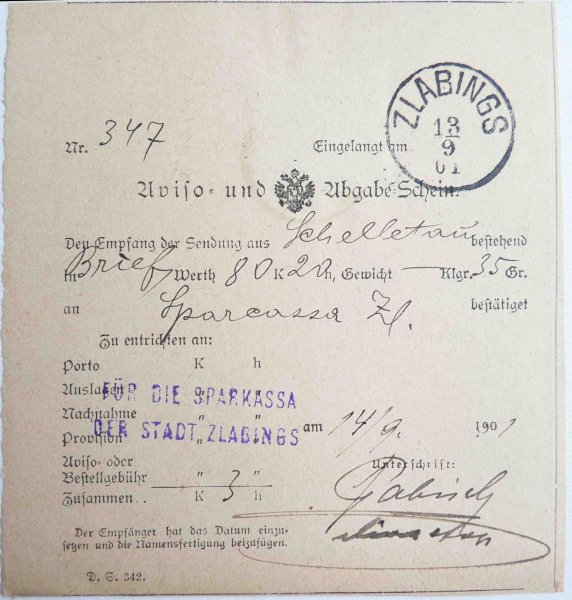 ZLABINGS
13
9
01
Nr. 347 Eingelangt am
Aviso- und Abgabe-Schein.
Den Empfang der Sendung aus Schelletau bestehend
in Brief, Werth 80 K 20 h, Gewicht — Klgr. 35 Gr.
an Sparcassa Zl. bestätigt
Zu entrichten an:
Porto K h
Auslagen " "
FÜR DIE SPARKASSA
Nachnahme " "
DER STADT ZLABINGS
Provision " " am 14/9. 1901
Aviso- oder
Bestellgebühr " " Unterschrift:
Zusammen . . K 3 h
Der Empfänger hat das Datum einzu-
setzen und die Namensfertigung beizufügen.
D. S. 342.